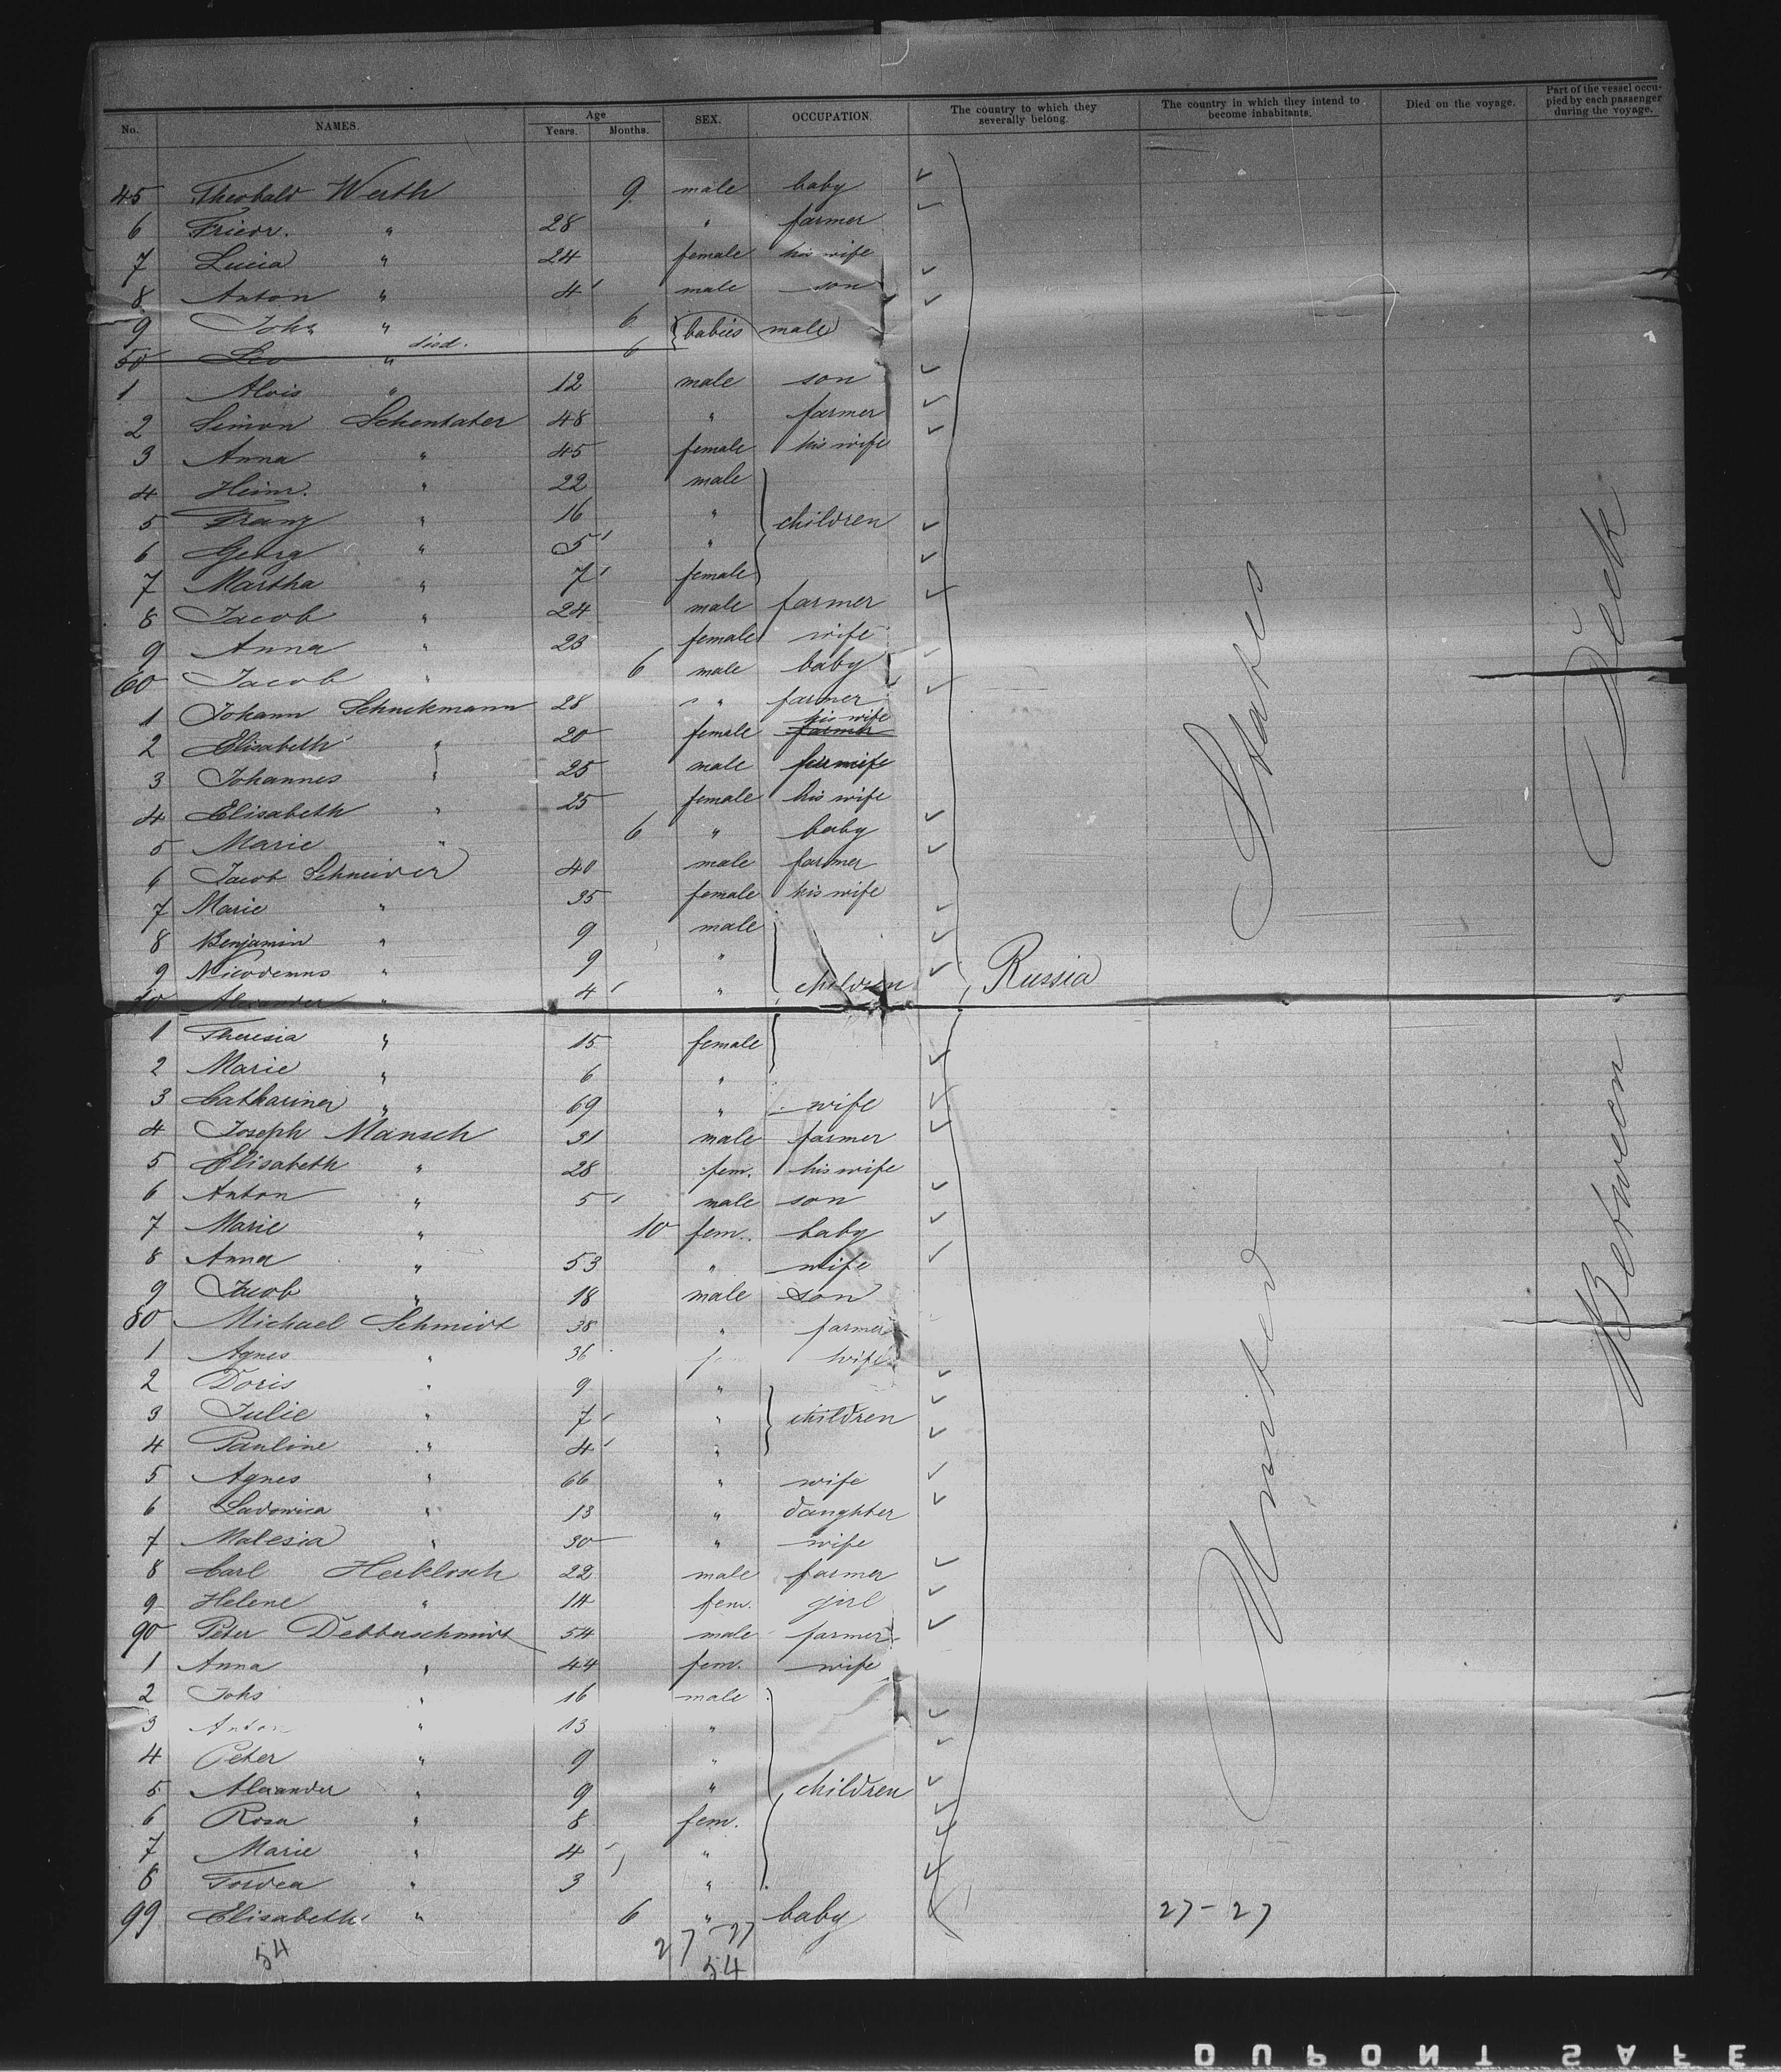 No. NAMES. Age Years. Months. SEX. OCCUPATION. The country to which they severally belong. The country in which they intend to become inhabitants. Died on the voyage. Part of the vessel occupied by each passenger during the voyage.
45 Theobald Werth 9 male baby
6 Friedr. " 28 " farmer
7 Lucia " 24 female his wife
8 Anton " 4 male son
9 Johs " 6 babies male
50 Leo " died. 6
1 Alois " 12 male son
2 Simon 48 " farmer
3 Anna " 45 female his wife
4 Heinr. " 22 male
5 Franz " 16 " children
6 Georg " 5 "
7 Martha " 7 female
8 Jacob " 24 male farmer
9 Anna " 23 female wife
60 Jacob " 6 male baby
1 Johann 28 " farmer
2 Elisabeth " 20 female farmer his wife
3 Johannes " 25 male
4 Elisabeth " 25 female his wife
5 Marie " 6 " baby
6 Jacob Schneider 40 male farmer
7 Marie " 35 female his wife
8 Benjamin " 9 male
9 Nicodemus " 9 "
70 Alexander " 4 " children Russia
1 Theresia " 15 female
2 Marie " 6 "
3 Catharina " 69 " wife
4 Joseph Mansch 31 male farmer
5 Elisabeth " 28 fem. his wife
6 Anton " 5 male son
7 Marie " 10 fem. baby
8 Anna " 53 " wife
9 Jacob " 18 male son
80 Michael Schmidt 38 " farmer
1 Agnes " 36 wife
2 Doris " 9 "
3 Julie " 7 " children
4 Pauline " 4 "
5 Agnes " 66 " wife
6 " 13 " daughter
7 " 30 " wife
8 Carl 22 male farmer
9 Helene " 14 fem. girl
90 Peter 54 male farmer
1 Anna " 44 fem. wife
2 Johs " 16 male
3 Anton " 13 "
4 Peter " 9 "
5 Alexander " 9 " children
6 Rosa " 8 fem.
7 Marie " 4 "
8 " 3 "
99 Elisabeth " 6 " baby
54 27-27 27-27
54
United States
Between Deck
DUPONT SAFE